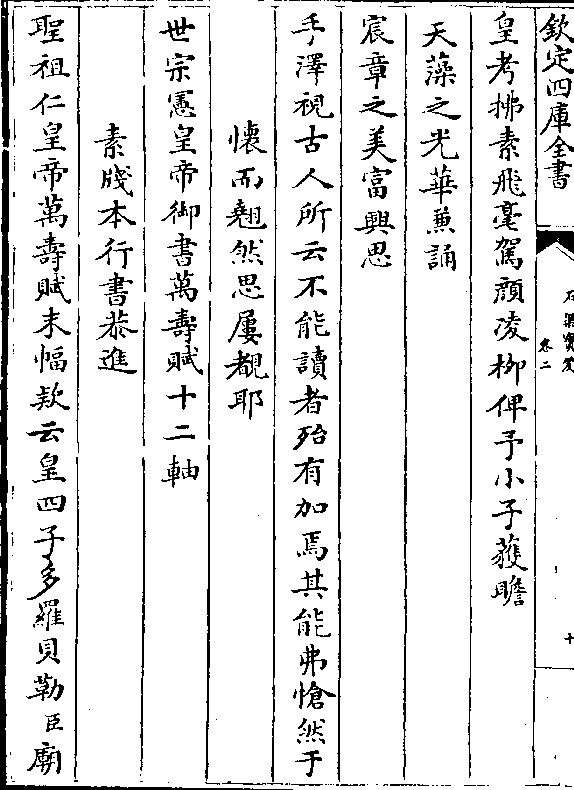 欽定四庫全書
石渠寶笈
卷二
十
皇考拂素飛毫駕顔凌栁俾予小子獲瞻
天藻之光華兼誦
宸章之美富興思
手澤視古人所云不能讀者殆有加焉其能弗愴然于
懷而翹然思屢覩耶
世宗憲皇帝御書萬壽賦十二軸
素牋本行書恭進
聖祖仁皇帝萬壽賦末幅欵云皇四子多羅貝勒臣廟